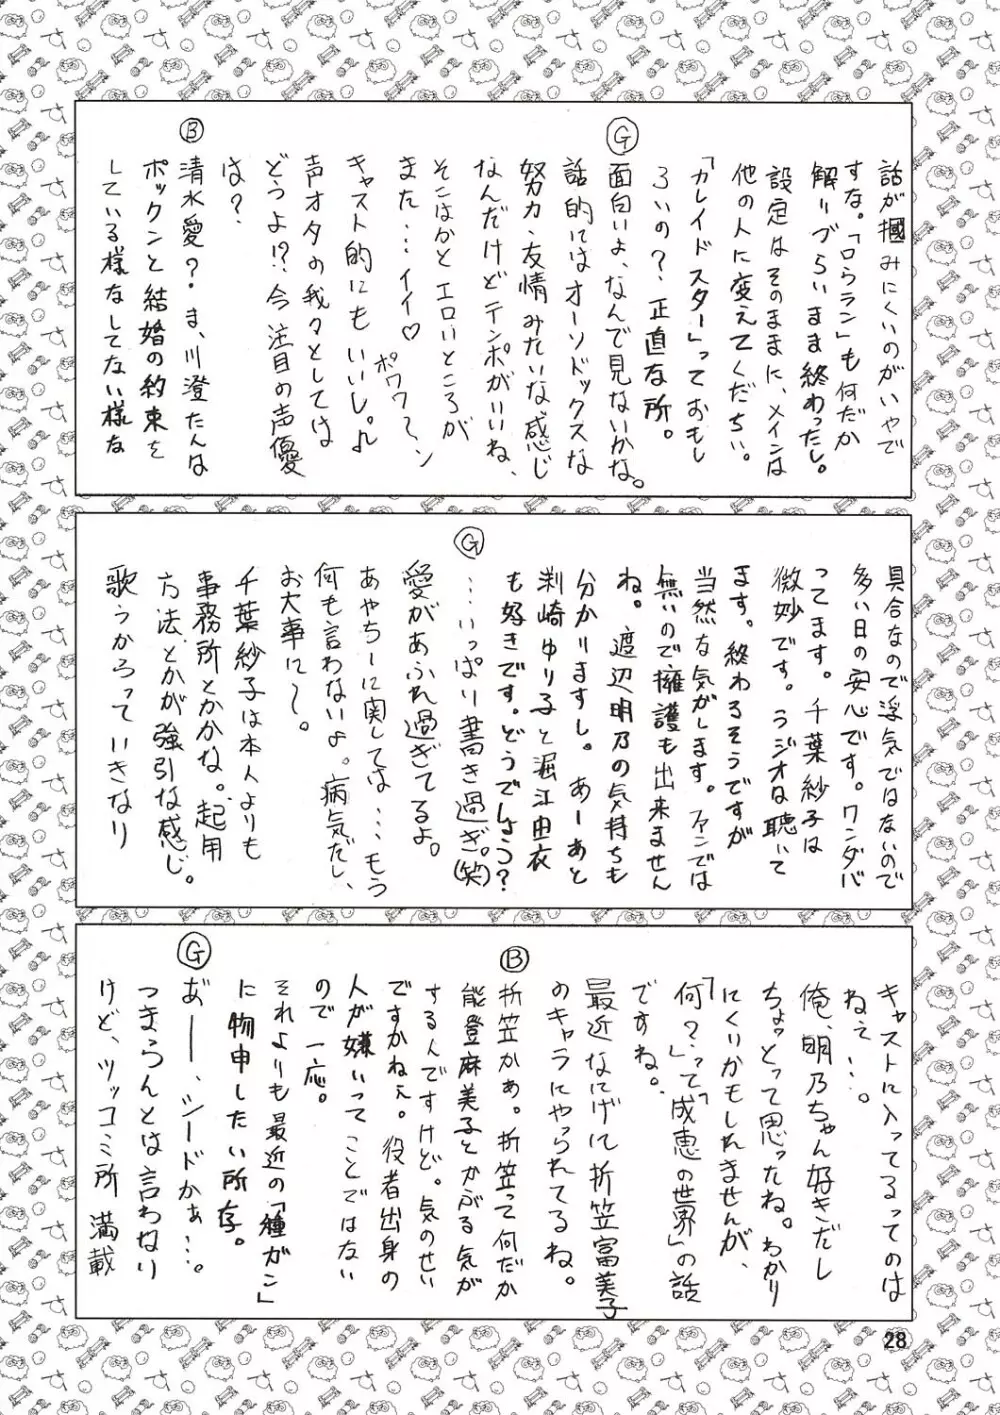 話が摑みにくいのがいやで
すな。「ロらラン」も何だか
解りづらいまま終わったし。
設定はそのままに、メインは
他の人に変えてくだちい。
「カレイドスター」っておもし
ろいの？正直な所。
Ⓖ 面白いよ、なんで見ないかな。
話的にはオーソドックスな
努力・友情みたいな感じ
なんだけどテンポがいいね、
そこはかとエロいところが
また…イイ♡ ポワワ〜ン
キャスト的にもいいし。♪
声オタの我々としては
どうよ!?今注目の声優
は？
Ⓑ 清水愛？ま、川澄たんは
ボックンと結婚の約束を
している様なしてない様な
具合なので浮気ではないので
多い日の安心です。ワンダバ
ってます。千葉紗子は
微妙です。ラジオは聴いて
ます。終わるそうですが
当然な気がします。ファンでは
無いので擁護も出来ません
ね。渡辺明乃の気持ちも
分かりますし。あーあと
剃崎ゆり子と堀江由衣
も好きです。どうでしょう？
Ⓖ …いっぱい書き過ぎ。(笑)
愛があふれ過ぎてるよ。
あやちーに関しては…もう
何も言わないよ。病気だし、
お大事に〜。
千葉紗子は本人よりも
事務所とかかな。起用
方法とかが強引な感じ。
歌うからっていきなり
キャストに入ってるってのは
ねぇ…。
俺、明乃ちゃん好きだし
ちょっとって思ったね。わかり
にくいかもしれませんが、
「何？」って「成恵の世界」の話
ですね。
最近なにげに折笠富美子
のキャラにやられてるね。
Ⓑ 折笠かぁ。折笠って何だか
能登麻美子とかぶる気が
するんですけど。気のせい
ですかねぇ。役者出身の
人が嫌いってことではない
ので一応。
それよりも最近の「種ガン」
に物申したい所存。
Ⓖ あ゛ー、シードかぁ…。
つまらんとは言わない
けど、ツッコミ所満載
28